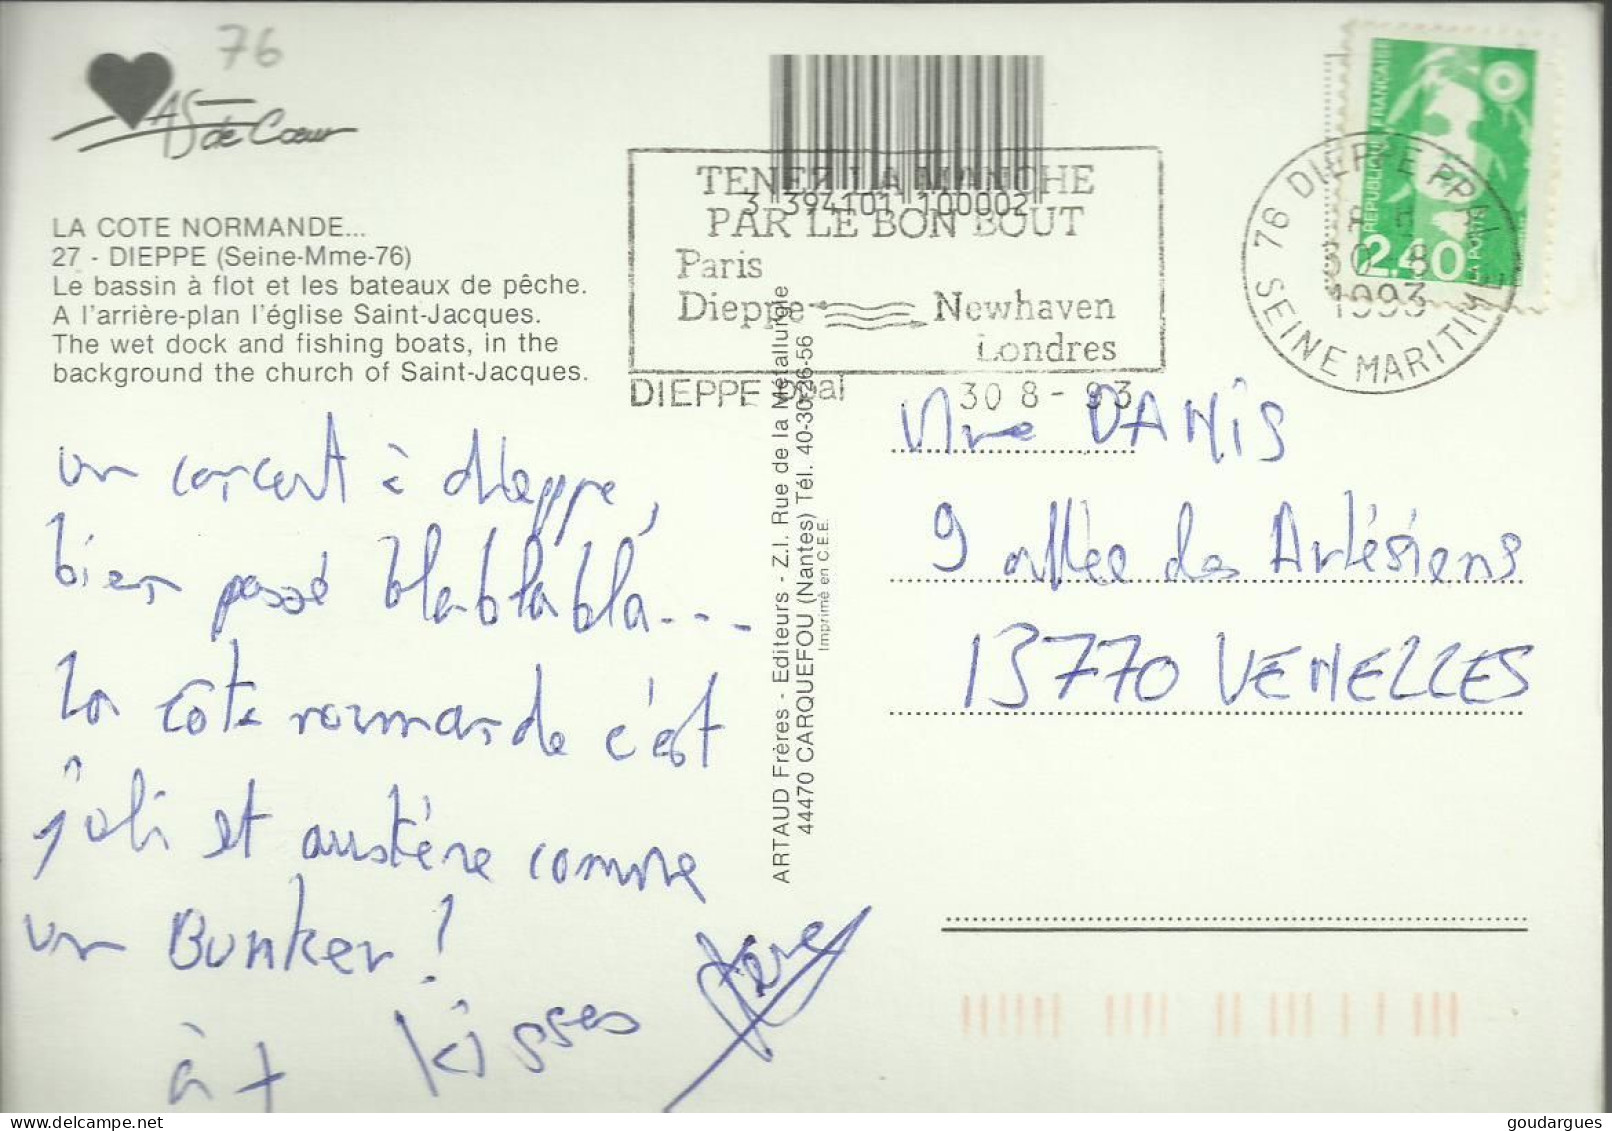 76
AS de Cœur
LA COTE NORMANDE...
27 - DIEPPE (Seine-Mme-76)
Le bassin à flot et les bateaux de pêche.
A l'arrière-plan l'église Saint-Jacques.
The wet dock and fishing boats, in the
background the church of Saint-Jacques.
un concert à dieppe,
bien passé blablabla...
la côte normande c'est
joli et austère comme
un Bunker!
à + kisses
3 394101 100002
TENEZ LA MANCHE
PAR LE BON BOUT
Paris
Dieppe Newhaven
Londres
DIEPPE ppal 30 8 - 93
ARTAUD Frères - Editeurs - Z.I. Rue de la Métallurgie
44470 CARQUEFOU (Nantes) Tél. 40-30-26-56
Imprimé en C.E.E.
REPUBLIQUE FRANÇAISE
2,40
LA POSTE
76 DIEPPE PPAL
30 - 8
1993
SEINE MARITIME
Mme DANIS
9 allée des Arlésiens
13770 VENELLES
goudargues © www.delcampe.net